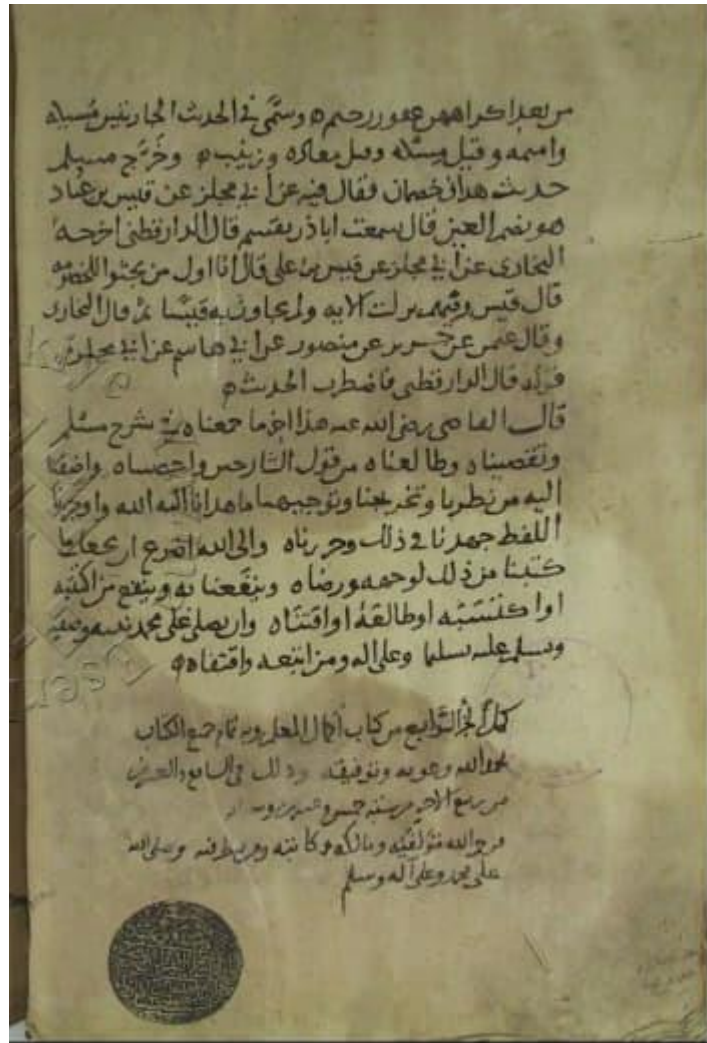 من بعد اكراههن غفور رحيم ه وسمى في الحديث الجاريتين مسيكه
واميمه وقيل مسيكه وقيل معاذه وزينب ه وخرج مسلم
حديث هذان خصمان فقال فيه عن ابي مجلز عن قيس بن عباد
هو بضم العين قال سمعت اباذر يقسم قال الدارقطني اخرجه
البخارى عن ابي مجلز عن قيس بن على قال انا اول من يجثوا للخصومه
قال قيس وفيهم نزلت الايه ولم يجاوز به قيسا ثم قال البخارى
وقال عثمن عن جرير عن منصور عن ابي هاشم عن ابي مجلز
قوله قال الدارقطنى فاضطرب الحديث ه
قال القاضى رضى الله عنه هذا اخر ما جمعناه في شرح مسلم
وتقصيناه وطالعناه من قول الشارحين واحصيناه واضفنا
اليه من نظرنا وتخريجنا وتوجيهنا ما هدانا اليه الله واوجزنا
اللفظ جهدنا في ذلك وحررناه والى الله اضرع ان يجعل ما
كتبنا من ذلك لوجهه ورضاه وينفعنا به وينفع من اكتتبه
او اكتسبه او طالعه او اقتناه وان يصلى على محمد نبيه وصفيه
وسلم عليه تسليما وعلى اله ومن اتبعه واقتفاه ه
كمل الجز الرابع من كتاب اكمال المعلم وبه تمام جميع الكتاب
بحمد الله وعونه وتوفيقه وذلك في السابع والعشرين
من ربيع الاخر من سنه خمس وعشرين
فرحم الله مؤلفه ومالكه وكاتبه ومن نظر فيه وصلى الله
على محمد وعلى آله وسلم